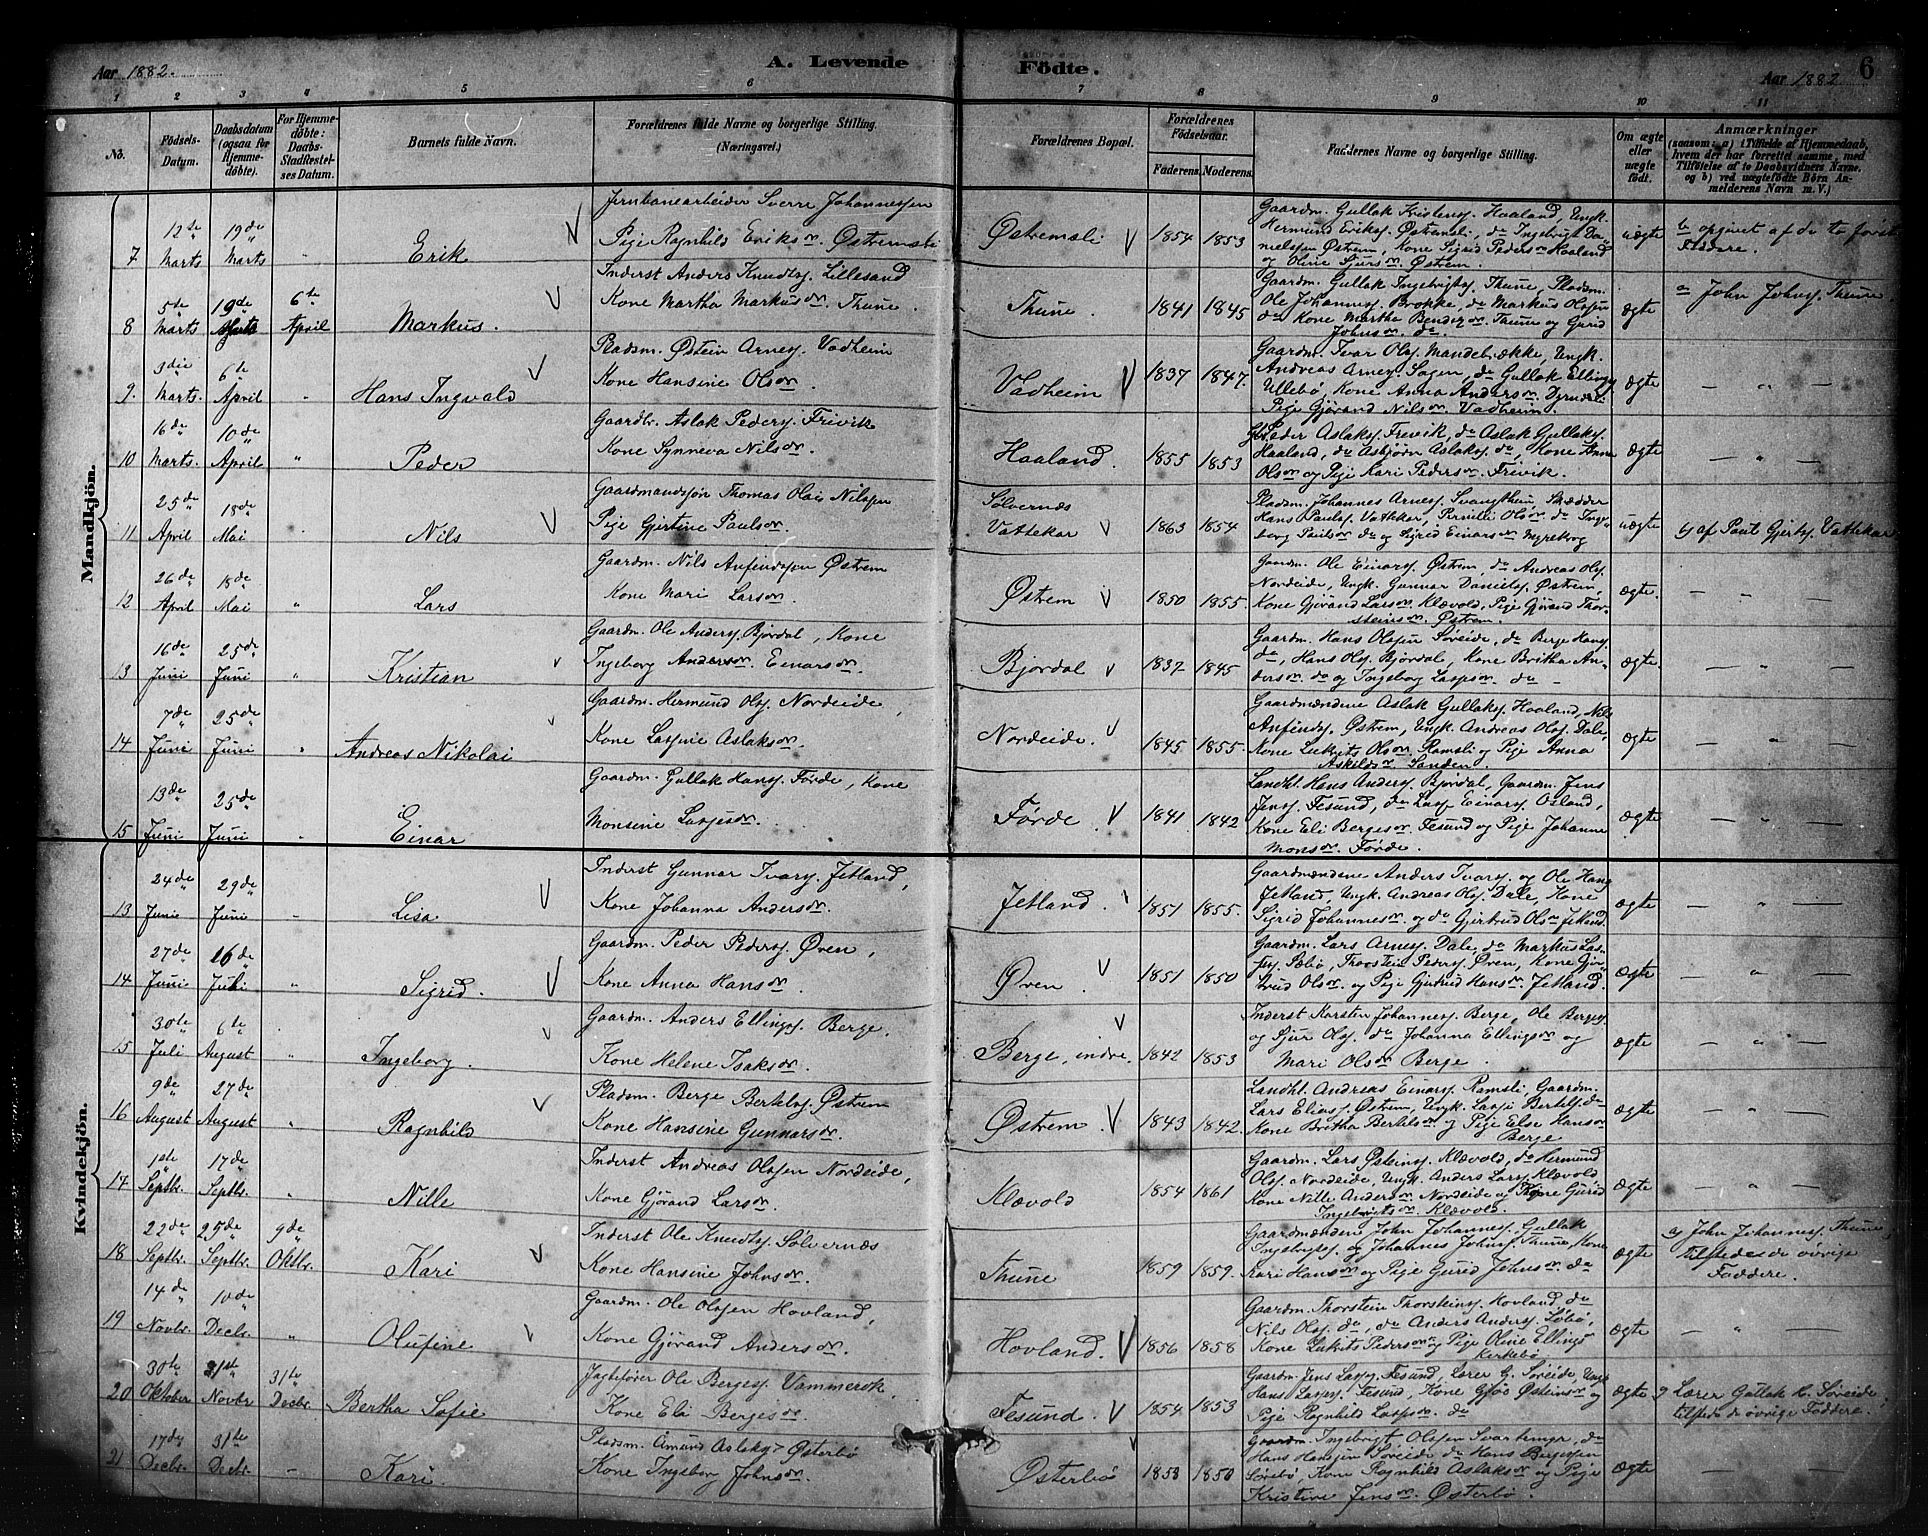 Aar 1882.
A. Levende Födte.
Aar 1882
6
1 2 3 4 5 6 7 8 9 10 11
No.
Födsels-Datum.
Daabsdatum (ogsaa for Hjemme-döbte).
For Hjemme-döbte: Daabs-Stadfæstel-ses Datum.
Barnets fulde Navn.
Forældrenes fulde Navne og borgerlige Stilling.
(Næringsvei.)
Forældrenes Bopæl.
Forældrenes Födselsaar.
Faderens. Moderens.
Faddernes Navne og borgerlige Stilling.
Om ægte eller uægte födt.
Anmærkninger
(saasom: a) i Tilfælde af Hjemmedaab, hvem der har forrettet samme, med Tilföielse af to Daabsvidners Navne, og b) ved uægtefödte Börn An-melderens Navn m. V.)
Mandkjön.
7 12te Marts 19de Marts " Erik
Jernbanearbeider Sverre Johannessen
Pige Ragnhild Eriksdr. Østremsli
Østremsli 1854 1853
Gaardm. Gullak Kristens. Haaland, Ungk.
Hermund Eriks. Østremsli, do Ingebrigt Da-
nielsen Østrem, Kone Sigrid Pedersdr Haaland
og Oline Sjursdr. Østrem.
uægte
b opgivet af de to første
Faddere.
8 5te Marts 19de Marts 6te April Markus.
Inderst Anders Knudts. Lillesand
Kone Martha Markusdr. Thune.
Thune 1841 1845
Gaardm. Gullak Ingebrigts. Thune, Pladsm.
Ole Johannes. Brokke, do Markus Olsen
do Kone Martha Bendixdr. Thune og Gurid
Johnsdr. do
ægte
a John Johns. Thune.
9. 3die Marts. 6te April " Hans Ingvald
Pladsm. Østein Arnes. Vadheim
Kone Hansine Olsdr.
Vadheim 1837 1847.
Gaardm. Ivar Ols. Mandelbække, Ungk.
Andreas Arnes. Sagen, do Gullak Ellings.
Ullebø, Kone Anna Andersdr. Dyrndal
Pige Gjørand Nilsdr. Vadheim.
ægte
— " —
10 16de Marts. 10de April " Peder
Gaardbr. Aslak Peders. Frivik
Kone Synneva Nilsdr.
Haaland. 1855 1853
Peder Aslaks. Frevik, do Aslak Gullaks.
Haaland, do Asbjørn Aslaks. do, Kone Anne
Olsdr og Pige Kari Pedersdr. Frivik.
ægte
— " —
11 25de April 18de Mai " Nils
Gaardmandssøn Thomas Olai Nilsen
Pige Gjertine Paulsdr.
Sølvernæs
Vattekar 1863 1854
Pladsm. Johannes Arnes. Svangtheim, Skrædder
Hans Pauls. Vattekar, Pernilli Olsdr. do Inge-
borg Paulsdr do og Sigrid Einarsdr Myrebog
uægte
b) af Paul Gjerts. Vattekar
12 26de April 18de Mai " Lars
Gaardm. Nils Anfindssen Østrem
Kone Mari Larsdr.
Østrem 1850 1855.
Gaardm. Ole Einars. Østrem do Andreas Ols.
Nordeide, Ungk. Gunnar Daniels. Østrem,
Kone Gjørand Larsdr. Klævold, Pige Gjørand Thor-
steinsdr. Østrem.
ægte.
— " —
13 16de Juni 25de Juni " Kristian
Gaardm. Ole Anders. Bjordal, Kone
Ingeborg Andersdr. Einarsdr.
Bjordal 1837 1845
Gaardm. Hans Olsen Søreide, do Berge Hans.
do, Hans Ols. Bjordal, Kone Britha An-
dersdr. do og Ingeborg Lassesdr. do —
ægte
— " —
14 7de Juni 25de Juni " Andreas Nikolai
Gaardm. Hermund Ols. Nordeide,
Kone Lassine Aslaksdr.
Nordeide. 1845 1855.
Gaardmændene Aslak Gullaks. Haaland, Nils
Anfinds. Østrem, Ungk. Andreas Ols. Dale,
Kone Lukrits Olsdr. Ramsli og Pige Anna
Askildsdr. Sanden.
ægte
— " —
15 13de Juni 25de Juni " Einar
Gaardm. Gullak Hans. Førde, Kone
Monsine Lassesdr.
Førde. 1841. 1842
Landhl. Hans Anders. Bjordal, Gaardm. Jens
Jens. Fesund, do Lasse Einars. Osland,
Kone Eli Bergesdr. Fesund og Pige Johanne
Monsdr. Førde.
ægte
— " —
Kvindekjön.
13 24de Juni 29de Juni " Lisa
Inderst Gunnar Ivars. Jetland,
Kone Johanna Andersdr.
Jetland. 1851 1855.
Gaardmændene Anders Ivars. og Ole Hans.
Jetland, Ungk. Andreas Ols. Dale, Kone
Sigrid Johannesdr. og do Gjertrud Olsdr Jetland.
ægte
— " —
14 27de Juni 16de Juli " Sigrid.
Gaardm. Peder Peders. Øven,
Kone Anna Hansdr.
Øven. 1851 1850
Gaardm. Lars Arnes. Dale, do Markus Las-
ses. Sæbø, Thorstein Peders. Øven, Kone Gjer-
trud Olsdr. og Pige Gjertrud Hansdr Jetland.
ægte
— " —
15 30te Juli 6te August " Ingeborg.
Gaardm. Anders Ellings. Berge,
Kone Helene Isaksdr.
Berge, indre. 1842 1853
Inderst Karsten Johannes. Berge, Ole Berges.
og Sjur Ols. do Johanna Ellingsdr og
Mari Olsdr Berge.
ægte
— " —
16 9de August 27de August " Ragnhild
Pladsm. Berge Bertels. Østrem
Kone Hansine Gunnarsdr.
Østrem 1843 1842.
Landhl. Andreas Einars. Ramsli, Gaardm.
Lars Elias. Østrem, Ungk. Lasse Bertels. do
Kone Britha Bertelsdr og Pige Else Hansdr
Berge
ægte
— " —
17 1ste Septbr. 17de Septbr. " Nille
Inderst Andreas Olsen Nordeide,
Kone Gjørand Larsdr.
Klævold 1854 1861
Gaardm. Lars Østeins. Klævold, do Hermund
Ols. Nordeide, Ungk. Anders Lars. Klævold
Kone Nille Andersdr. Nordeide og Kone Gurid
Ingebrigtsdr. Klævold.
ægte
— " —
18 22de Septbr. 25de Septbr. 9de Oktbr. Kari
Inderst Ole Knudts. Sølvernæs
Kone Hansine Johnsdr.
Thune 1859 1859.
Gaardmændene John Johannes. Gullak
Ingebrigts. og Johannes Johns. Thune, Kone
Kari Hansdr og Pige Gurid Johnsdr. do
ægte
a) John Johannes. Thune,
tilstede de øvrige
Faddere.
19 14de Novbr. 10de Decbr. " Olufine
Gaardm. Ole Olssen Hovland,
Kone Gjørand Andersdr.
Hovland. 1856 1858
Gaardm. Thorstein Thorsteins. Hovland do
Nils Ols. do, do Anders Anders. Søbø,
Kone Lukrits Pedersdr og Pige Oline Ellingsdr
Kirkebø
ægte
— " —
20 30te Oktober 21ste Novbr 31te Decbr. Bertha Sofie
Jagtefører Ole Berges. Vammervik
Kone Eli Bergesdr.
Fesund. 1854 1853
Gaardm. Jens Lasses. Fesund, Lærer G. Søreide, Ungk.
Hans Lasses. Fesund, Kone Gjøa Østeinsdr og
Pige Ragnhild Lassesdr. do
ægte
a Lærer Gullak H. Søreide
tilstede de øvrige Faddere.
21 17de Decbr. 31te Decbr. — Kari.
Pladsm. Amund Aslaks. Østerbø
Kone Ingeborg Johnsdr.
Østerbø 1853 1850
Gaardm. Ingebrigt Olssen Svartenge, do
Hans Hansen Søreide do Hans Bergessen
Sørebø, Kone Ragnhild Aslaksdr og Pige
Kristine Jensdr. Østerbø.
ægte
— " —